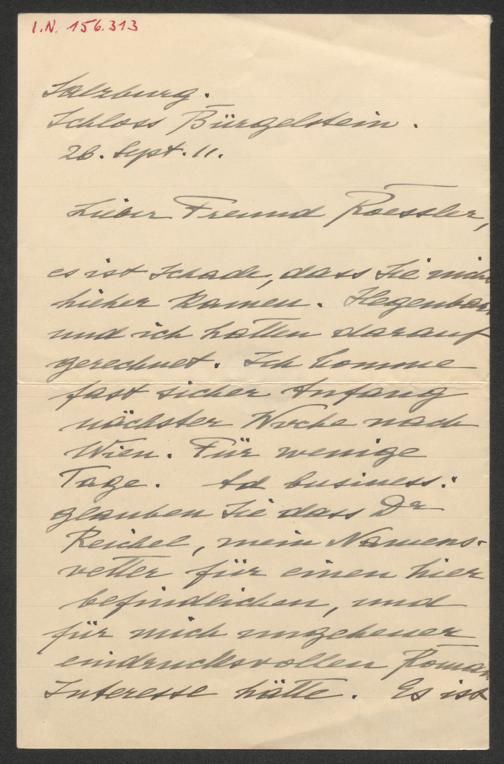 I.N. 156.313
Salzburg.
Schloss Bürgelstein.
26. Sept. 11.
Lieber Freund Roessler,
es ist schade, dass Sie nicht
hieher kamen. Hegenbar
und ich hatten darauf
gerechnet. Ich komme
fast sicher Anfang
nächster Woche nach
Wien. Für wenige
Tage. Ad business:
glauben Sie dass Dr
Reichel, mein Namens-
vetter für einen hier
befindlichen, und
für mich ungeheuer
eindrucksvollen Roman
Interesse hätte. Es ist